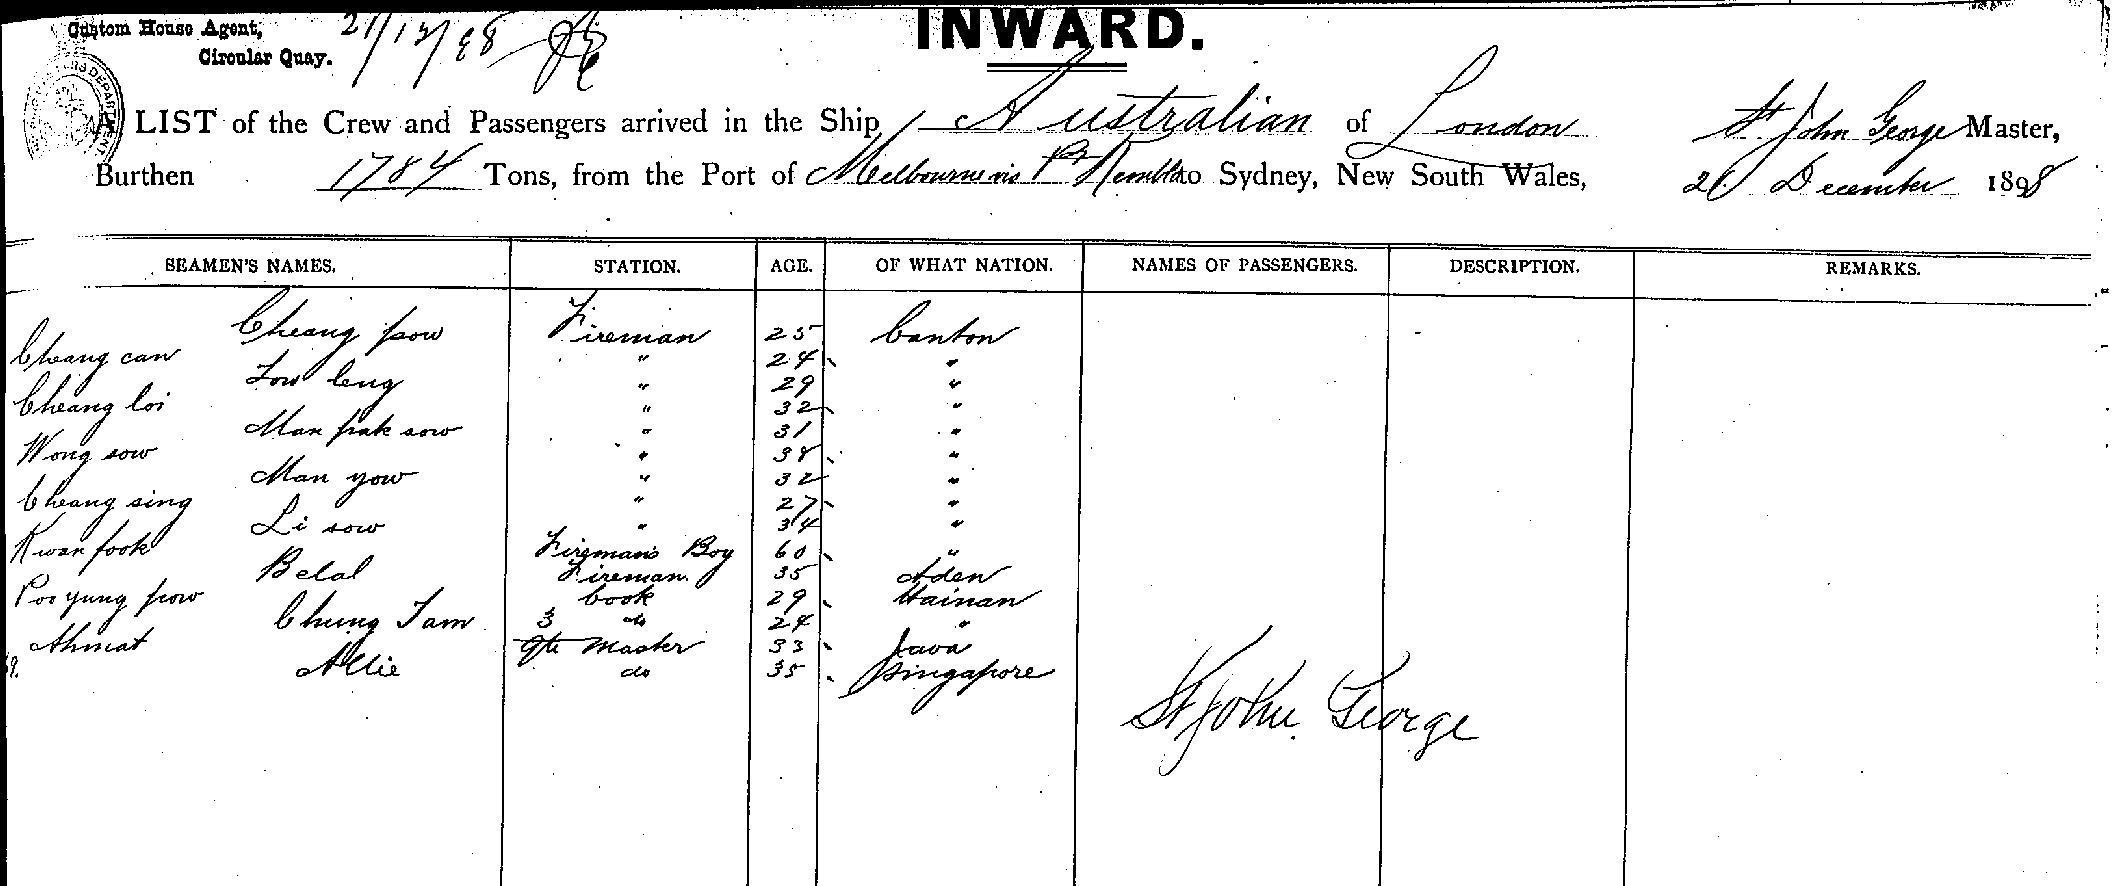 Custom House Agent, 21/12/98
Circular Quay.
INWARD.
A LIST of the Crew and Passengers arrived in the Ship Australian of London St. John George Master,
Burthen 1784 Tons, from the Port of Melbourne via Pt Kembla to Sydney, New South Wales, 21 December 1898
SEAMEN'S NAMES. STATION. AGE. OF WHAT NATION. NAMES OF PASSENGERS. DESCRIPTION. REMARKS.
Cheang pow Fireman 25 Canton
Cheang can " 24 "
Fow leng " 29 "
Cheang loi " 32 "
Man pak sow " 31 "
Wong sow " 38 "
Man yow " 32 "
Cheang sing " 27 "
Li sow " 34 "
Kwan fook Fireman's Boy 60 "
Belal Fireman. 35 Aden
Poo yung pow Cook 29 Hainan
Chung Tam 3 do 24 "
Ahmat Qtr Master 33 Java
Allie do 35 Singapore
St John George